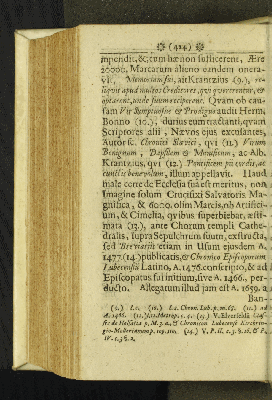 (424)
mpendit, &, cum hæ non sufficerent, Ære
20000. Marcarum alieno eandem onera-
vit. Memoriam sui, ait Krantzius (9.), re-
liquit apud multos Creditores, qui quererentur, &
optarent, unde suum reciperent. Quam ob cau-
sam Vir Sumptuosus & Prodigus audit Herm.
Bonno (10.), durius eum tractanti, quam
Scriptores alii, Nævos ejus excusantes,
Autor sc. Chronici Slavici, qvi (11.) Virum
Benignum, & Mitissimum, ac Alb.
Krantzius, qvi (12.) Pontificem sui
cunctis benevolum, illum appellavit. Haud
male corde de Ecclesia sua est meritus, non
Imagine solum Crucifixi Salvatoris Ma-
gnifica, & 6000. olim Marcis, ob Artifici-
um, & Cimelia, qvibus superbiebat, æsti-
mata (13.), ante Chorum templi Cathe-
dralis, supra Sepulchrum suum, exstructa,
sed Breviariis etiam in Usum ejusdem A.
1477. (14.) publicatis, & Chronico Episcoporum
Lubecensium Latino, A. 1476. conscripto, & ad
Episcopatus sui initium, sive A. 1466. per-
ducto. Allegatum illud jam est A. 1659. a
Ban-
(9.) l. c. (10.) l. c. Chron. Lub. p. m. 65. (11.) ad
A. 1486. (12.) l. 12. Metrop. c. 4. (13.) V.